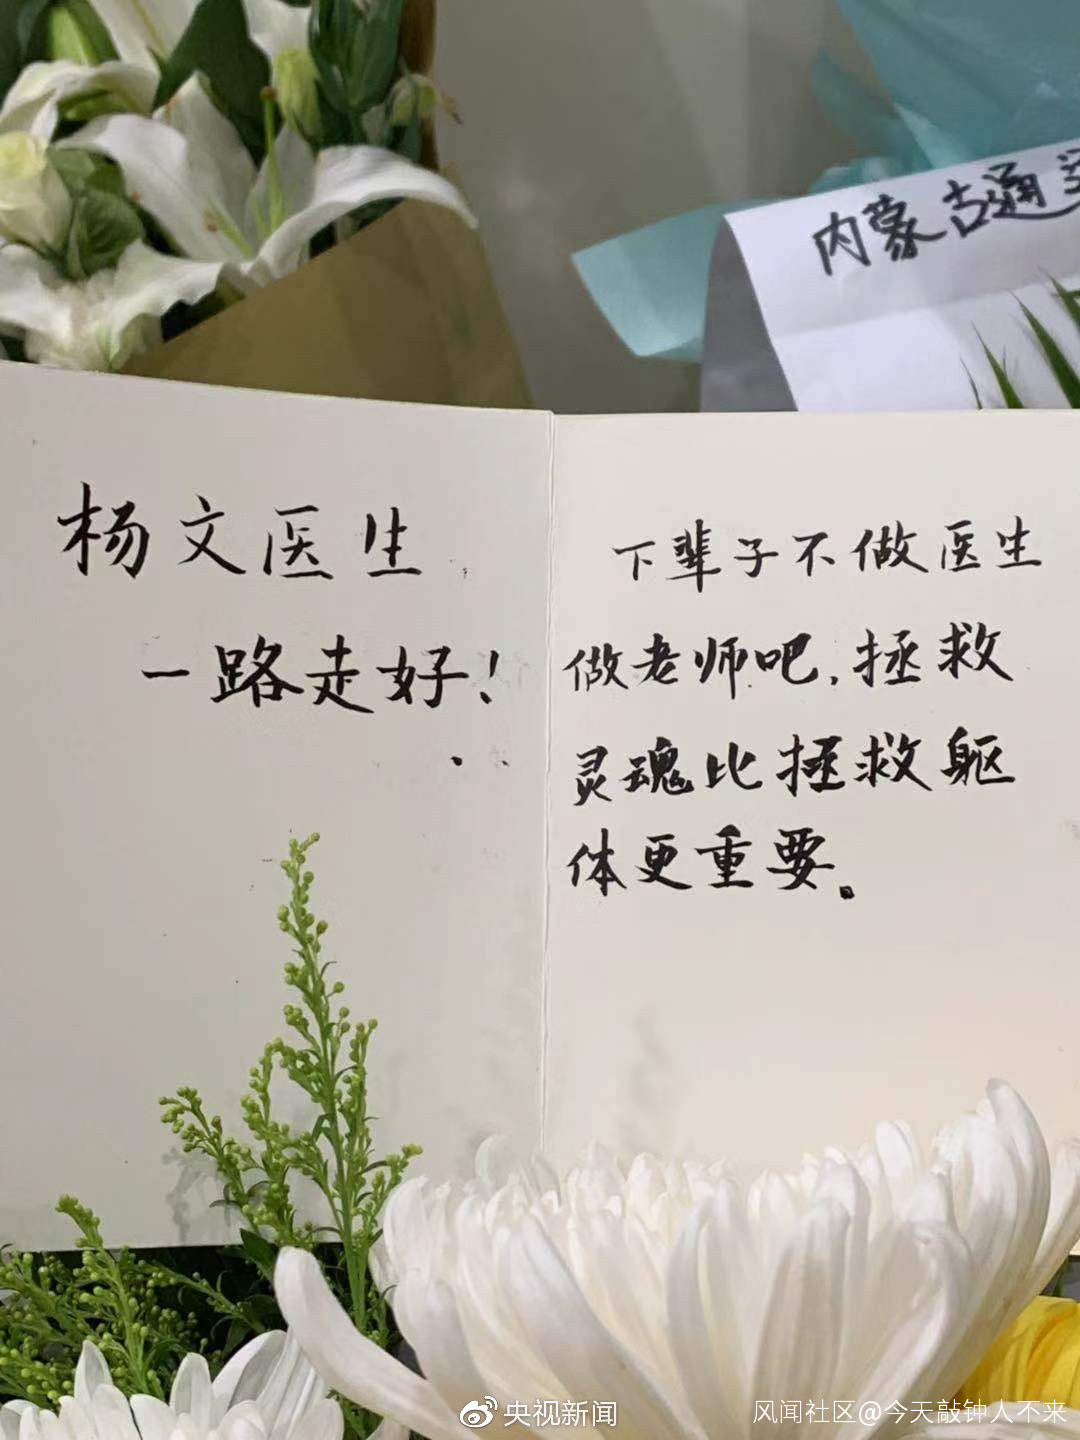 内蒙古通
杨文医生
一路走好!
下辈子不做医生
做老师吧,拯救
灵魂比拯救躯
体更重要。
央视新闻
风闻社区@今天敲钟人不来